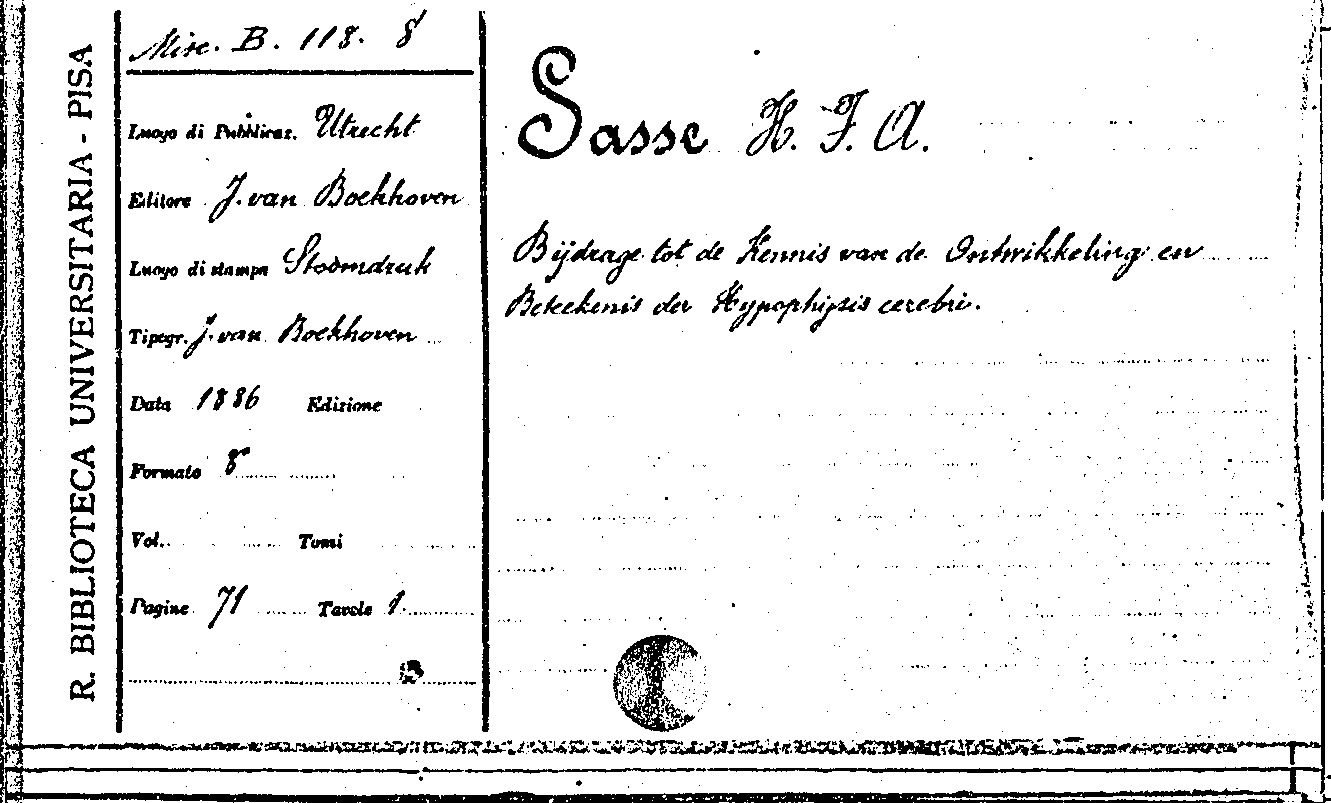 R. BIBLIOTECA UNIVERSITARIA - PISA
Misc. B. 118. 8
Luogo di Pubblicaz. Utrecht
Editore J. van Boekhoven
Luogo di stampa Stoomdruk
Tipogr. J. van Boekhoven
Data 1886 Edizione
Formato 8°
Vol. Tomi
Pagine 71 Tavole 1
Sasse H. F. A.
Bijdrage tot de Kennis van de Ontwikkeling en
Beteekenis der Hypophysis cerebri.